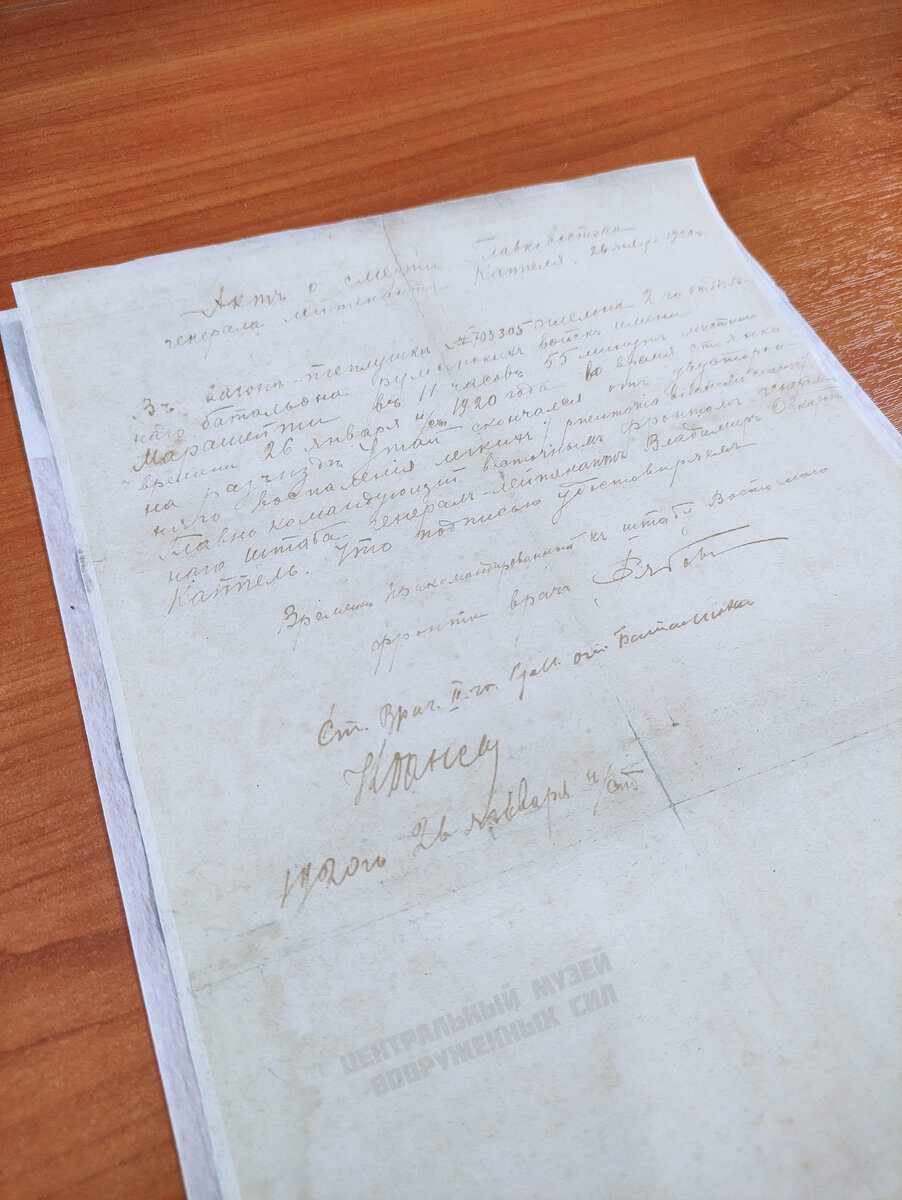 Актъ о смерти Главковостока
генерала лейтенанта Каппеля. 26 января 1920г
Въ вагон-теплушкѣ №03305 эшелона 2го отдѣль-
наго баталъона румынскихъ войскъ имени
Марашешти въ 11 часовъ 55 минутъ мѣстнаго
времени 26 января н/ст 1920 года во время стоянки
на разъѣздѣ Утай скончался отъ двусторон
няго воспаленія легкихъ
Главнокомандующій восточнымъ фронтомъ генераль
наго штаба Генералъ-лейтенантъ Владимиръ Оскарови
Каппель. Что подписью удостовѣряемъ
Времен. Прикомандированный къ штабу Восточнаго
фронта врачъ
Ст. Врач. II-го. Рум. от. Баталиона
Данец
1920г 26 января н/ст
ЦЕНТРАЛЬНЫЙ МУЗЕЙ
ВООРУЖЕННЫХ СИЛ